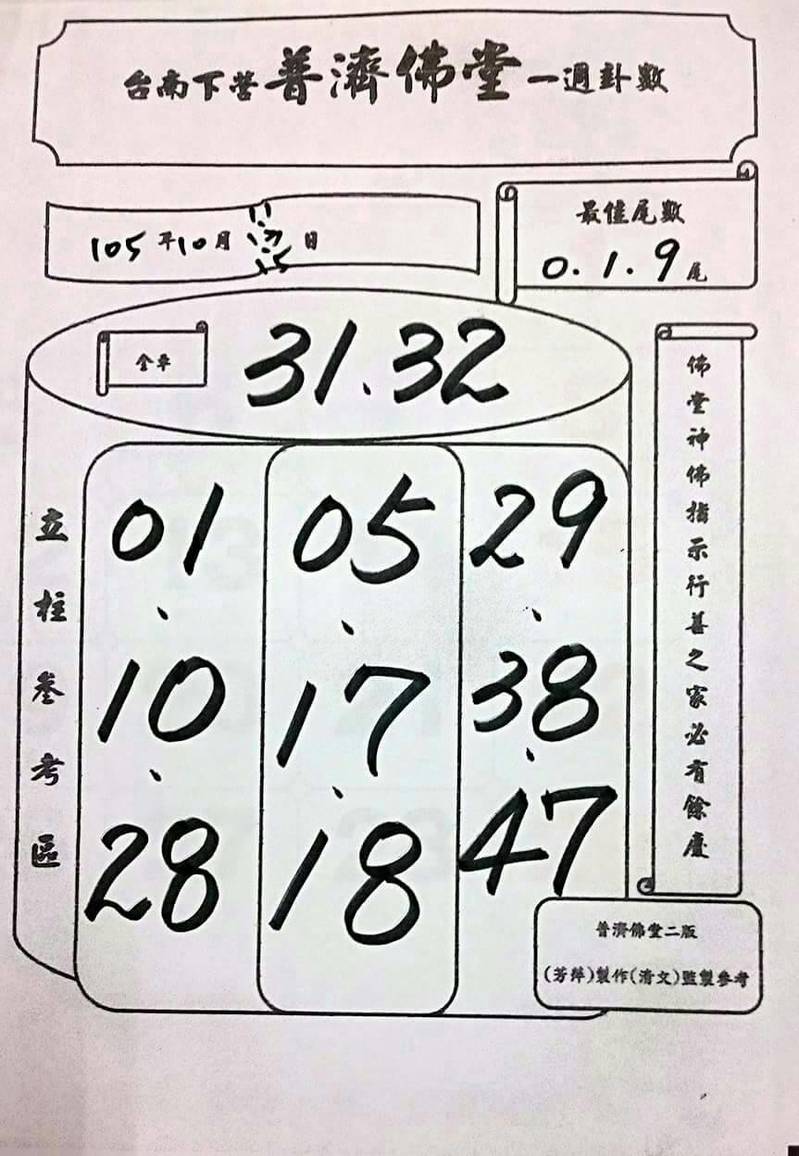 台南下營普濟佛堂一週卦數
105年10月 日
最佳尾數
0.1.9尾
全車
31.32
立柱叄考區
01、10、28
05、17、18
29、38、47
佛堂神佛指示行善之家必有餘慶
普濟佛堂二版
(芳萍)製作(清文)監製參考